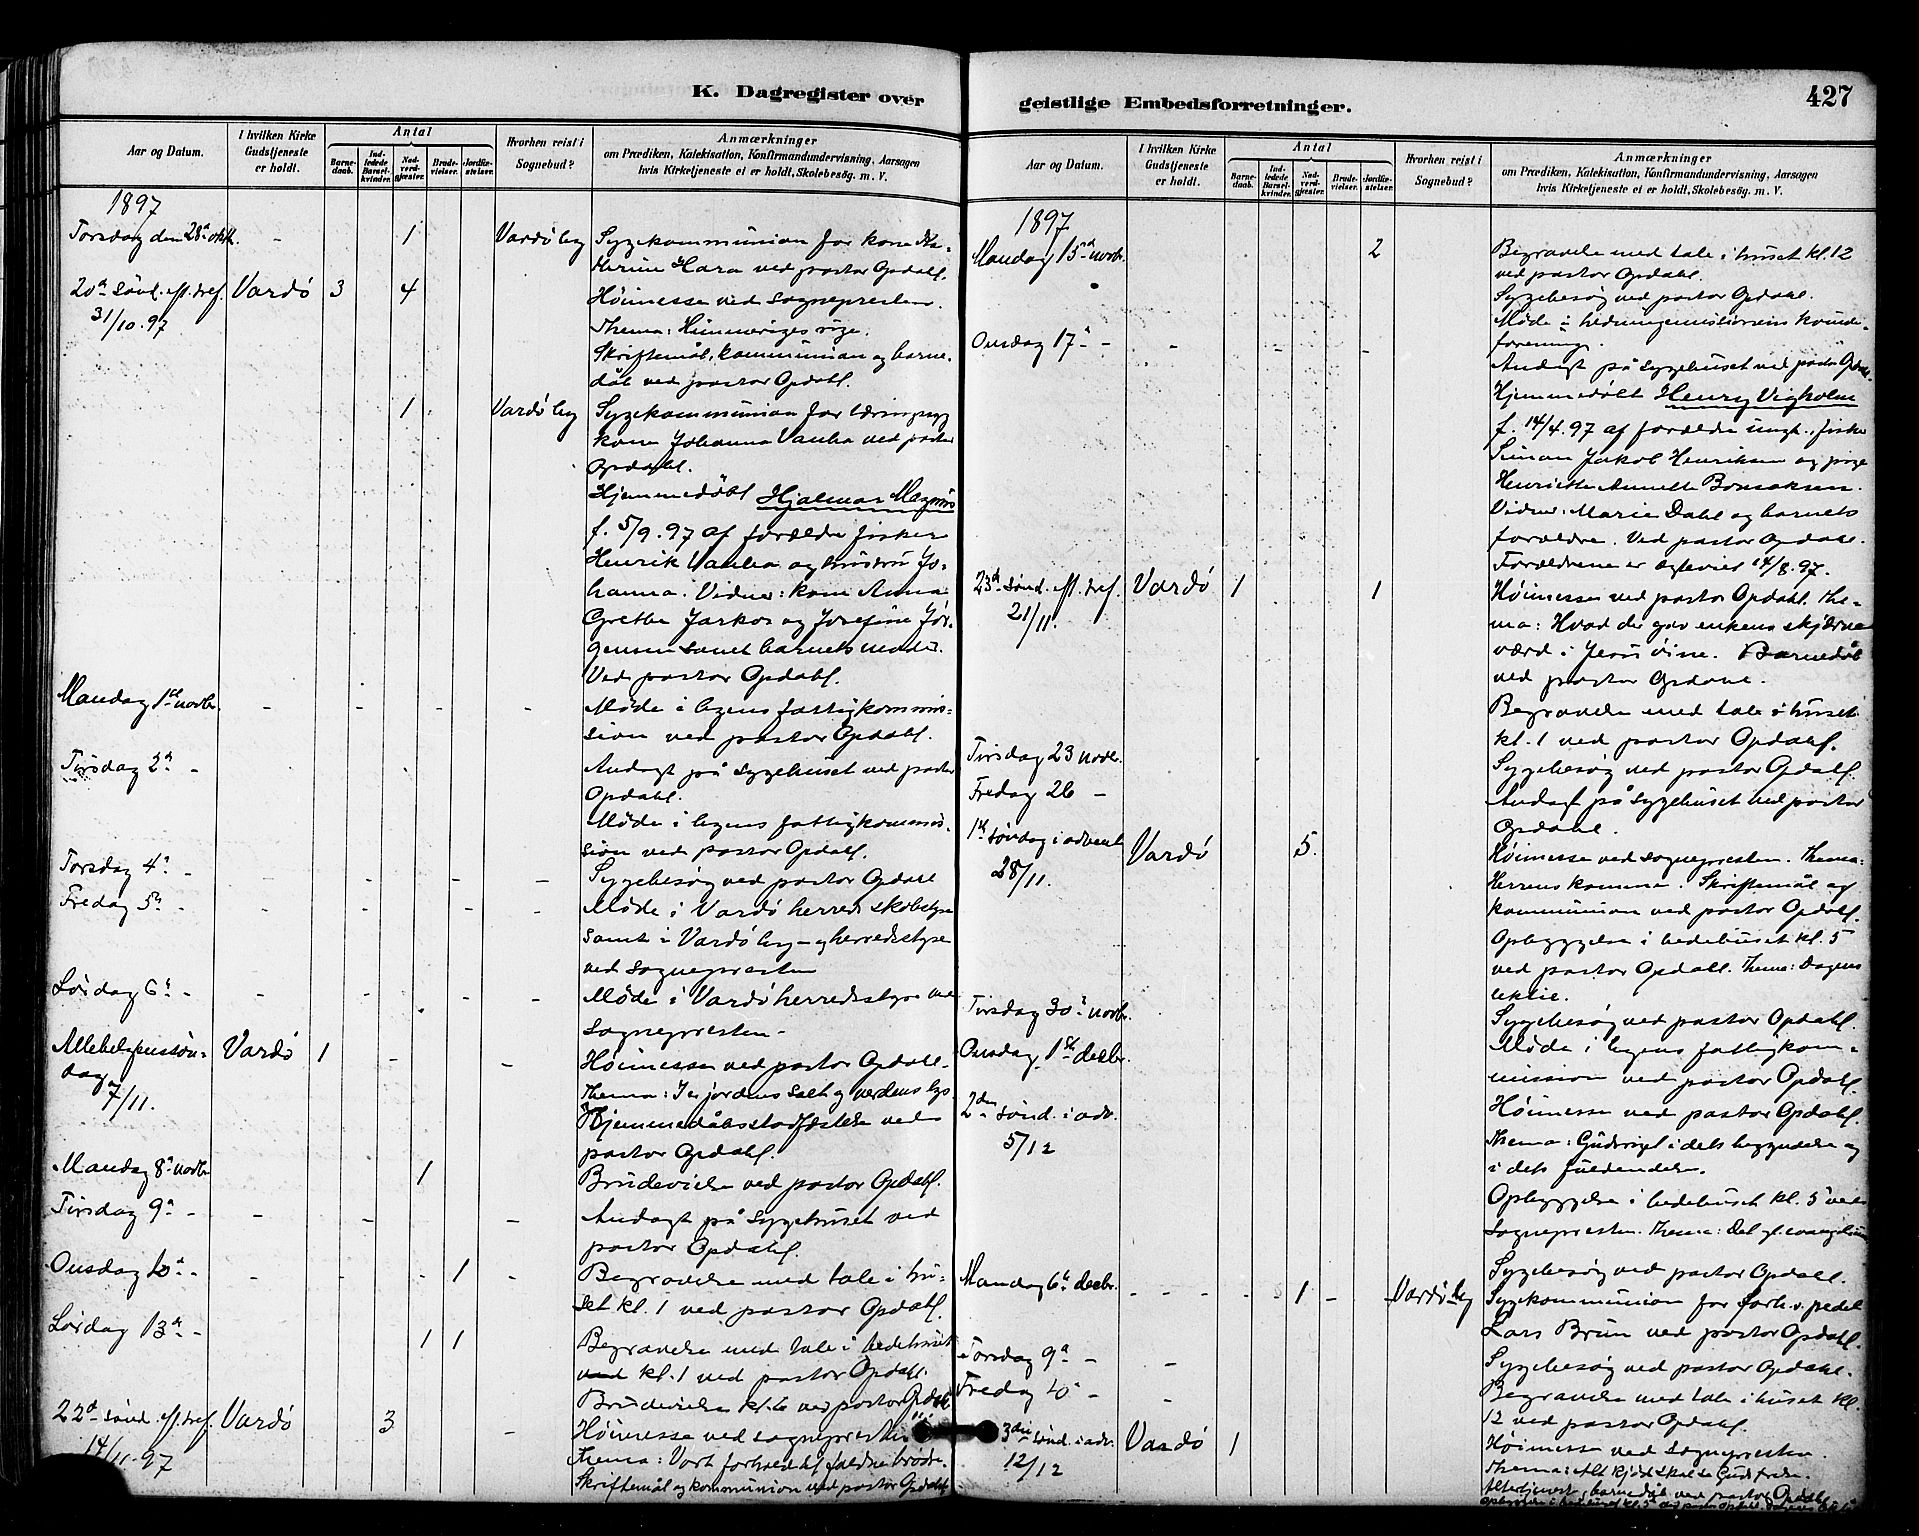 427
K. Dagregister over
Aar og Datum.
I hvilken Kirke Gudstjeneste er holdt.
Antal
Barnedaab.
Indledede Barselkvinder.
Nadverdgjæster.
Brudevielser.
Jordfæstelser.
Hvorhen reist i Sognebud?
Anmærkninger
om Prædiken, Katekisation, Konfirmandundervisning, Aarsagen
hvis Kirketjeneste ei er holdt, Skolebesøg. m. V.
1897
Torsdag den 28de oktb. - 1 Vardø by Sygekommunion for kone Ka-
therine Hara ved pastor Opdahl.
20de sønd. eft. tref. Vardø 3 4 Høimesse ved sognepresten.
31/10.97 Thema: Himmeriges rige.
Skriftemål, kommunion og barne-
dåb ved pastor Opdahl.
1 Vardø by Sygekommunion for tæringssyg
kone Johanna Vanha ved pastor
Opdahl.
Hjemmedøbt Hjalmar Magnus
f. 5/9.97 af forældre fisker
Henrik Vanha og hustru Jo-
hanna. Vidner: kone Anna
Grethe Jarkos og Josefine Jør-
gensen samt barnets moder.
Ved pastor Opdahl.
Mandag 1ste novbr. - - - - Møde i byens fattigkommis-
sion ved pastor Opdahl.
Tirsdag 2den - Andagt på sygehuset ved pastor
Opdahl.
Møde i byens fattigkommis-
sion ved pastor Opdahl.
Torsdag 4de - - - - - - Sygebesøg ved pastor Opdahl
Fredag 5te - - - - - - Møde i Vardø herreds skolestyre
samt i Vardø by- og herredsstyre
ved sognepresten
Lørdag 6te - - - - - - Møde i Vardø herredsstyre ved
sognepresten-
Allehelgenssøn- Vardø 1 - - Høimesse ved pastor Opdahl-
dag 7/11. Thema: I er jordens salt og verdens lys.
Hjemmedåbsstadfæstelse ved
pastor Opdahl.
Mandag 8de novbr 1 Brudevielse ved pastor Opdahl.
Tirsdag 9de - - - - Andagt på sygehuset ved
pastor Opdahl.
Onsdag 10de - - - - - 1 - Begravelse med tale i hu-
set kl. 1 ved pastor Opdahl.
Lørdag 13de - 1 1 Begravelse med tale i bedehuset
ved kl. 1 ved pastor Opdahl.
Brudevielse kl. 6 ved pastor Opdahl
22de sønd. eft. tref. Vardø 3 - Høimesse ved sognepresten
14/11.97 Thema: Vort forhold til faldne brødre.
Skriftemål og kommunion ved pastor Opdahl.
geistlige Embedsforretninger.
Aar og Datum.
I hvilken Kirke Gudstjeneste er holdt.
Antal
Barnedaab.
Indledede Barselkvinder.
Nadverdgjæster.
Brudevielser.
Jordfæstelser.
Hvorhen reist i Sognebud?
Anmærkninger
om Prædiken, Katekisation, Konfirmandundervisning, Aarsagen
hvis Kirketjeneste ei er holdt, Skolebesøg m. V.
1897
Mandag 15de novbr. 2 Begravelse med tale i huset kl. 12
ved pastor Opdahl.
Sygebesøg ved pastor Opdahl.
Møde i hedningemissionens kvinde-
forening.
Onsdag 17de - - - - Andagt på sygehuset ved pastor Opdahl.
Hjemmedøbt Henry Vigholm
f. 14/4.97 af forældre ungk., fisker
Simon Jakob Henriksen og pige
Henriette Annette Bonsaksen.
Vidner: Marie Dahl og barnets
forældre. Ved pastor Opdahl.
Forældrene er egteviet 14/8.97.
23de sønd. eft. tref. Vardø 1 1 Høimesse ved pastor Opdahl. The-
21/11. ma: Hvad der gav enkens skjærve
værd i Jesu øine. Barnedåb
ved pastor Opdahl.
Begravelse med tale i huset
kl. 1 ved pastor Opdahl.
Tirsdag 23 novbr. Sygebesøg ved pastor Opdahl.
Fredag 26 - Andagt på sygehuset ved pastor
Opdahl.
1ste søndag i advent Vardø 5 Høimesse ved sognepresten. Thema:
28/11. Herrens komme. Skriftemål og
kommunion ved pastor Opdahl.
Opbyggelse i bedehuset kl. 5
ved pastor Opdahl. Thema: Dagens
tekst.
Tirsdag 30te novbr. Sygebesøg ved pastor Opdahl.
Onsdag 1ste decbr. Møde i byens fattigkom-
mission ved pastor Opdahl.
2den sønd. i adv. Høimesse ved pastor Opdahl.
5/12 Thema: Gudsriget i dets begyndelse og
i dets fuldendelse.
Opbyggelse i bedehuset kl. 5 ved
sognepresten. Thema: Det gl. evangelium
Sygebesøg ved pastor Opdahl.
Mandag 6te decbr. - - - - - 1 - - Vardø by Sygekommunion for forh.v. pedel
Lars Brun ved pastor Opdahl.
Torsdag 9de - - Sygebesøg ved pastor Opdahl.
Fredag 10de - - Begravelse med tale i huset kl.
12 ved pastor Opdahl.
3die sønd. i adv. Vardø 1 Høimesse ved sognepresten.
12/12 Thema: Alt kjød skal se Guds frelse.
Altertjenest, barnedåb ved pastor Opdahl